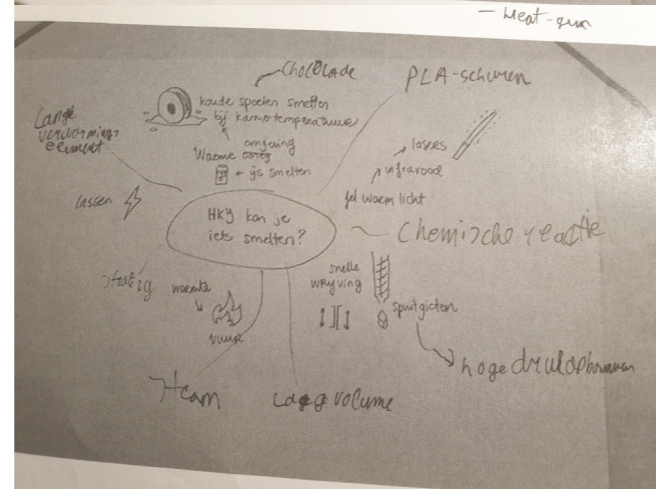 - Heat-gun
Chocolade
PLA-schuren
koude spoelen smelten
bij kamertemperatuur
Lange
vervormings
element
omgeving
Warme
ijs smelten
lasers
infrarood
fel warm licht
lassen
HKJ kan je
iets smelten?
Chemische reactie
snelle
wrijving
warmte
spuitgieten
vuur
hoge druk opbouwen
Steam
Lage volume